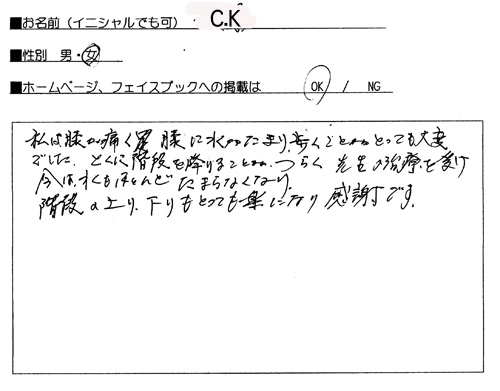 ■お名前（イニシャルでも可） C.K
■性別 男・女
■ホームページ、フェイスブックへの掲載は OK / NG
私は膝が痛く 膝に水がたまり、歩くことがとっても大変
でした。とくに階段を降りることが、つらく 先生の治療を受け
今は、水もほとんどたまらなくなり、
階段の上り、下りもとっても楽になり 感謝です。